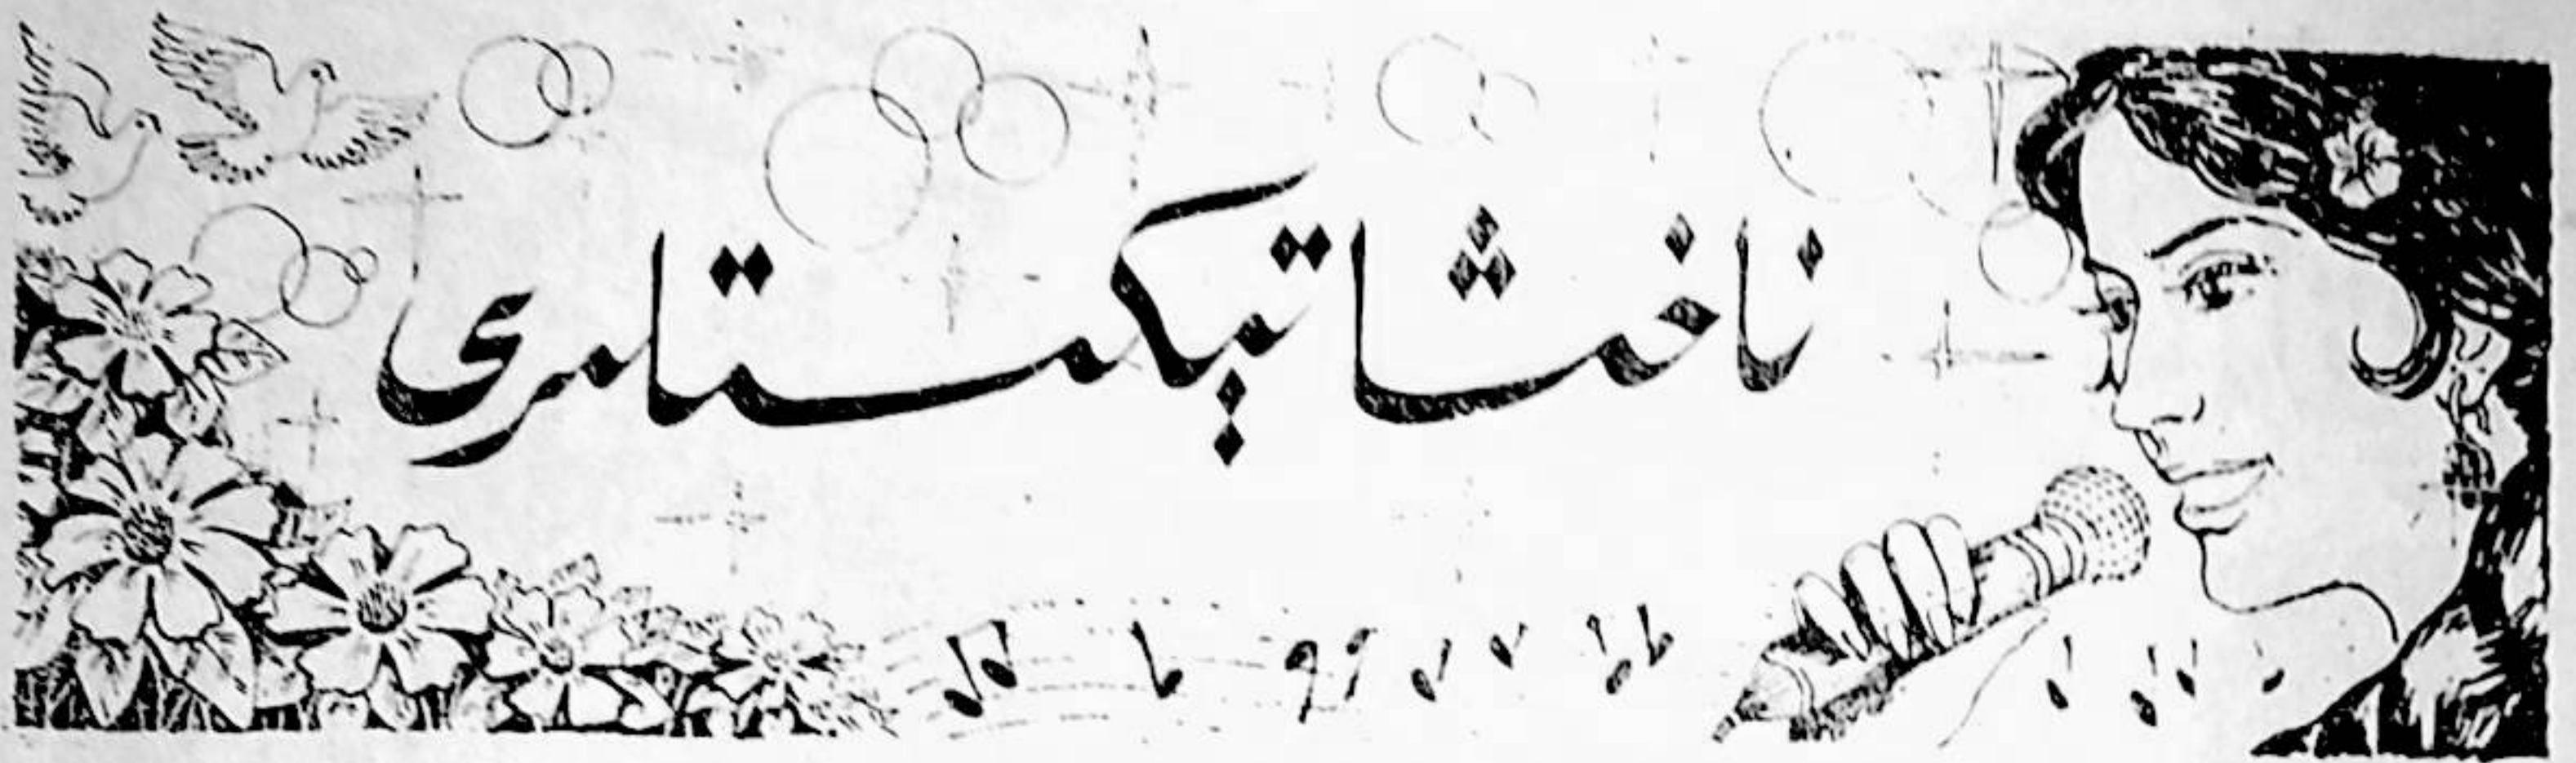 ناخشا تېكىستلىرى